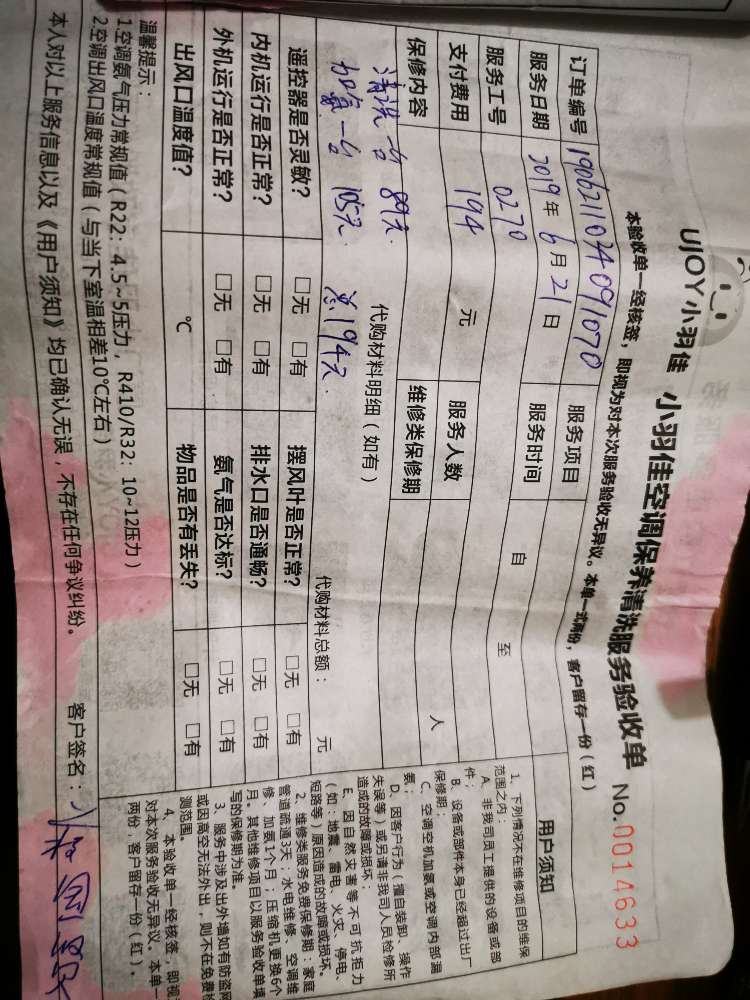 UJOY小羽佳 小羽佳空调保养清洗服务验收单 No.0014633
本验收单一经核签，即视为对本次服务验收无异议。本单一式两份，客户留存一份（红）
订单编号 190621034091070 服务项目
服务日期 2019年6月21日 服务时间 自 至
服务工号 0270
支付费用 194 元 服务人数 人
保修内容 维修类保修期
代购材料明细（如有）
清洗一台 89元
加氨一台 105元 总194元
代购材料总额： 元
遥控器是否灵敏？ □无 □有 摆风叶是否正常？ □无 □有
内机运行是否正常？ □无 □有 排水口是否通畅？ □无 □有
外机运行是否正常？ □无 □有 氨气是否达标？ □无 □有
出风口温度值？ ℃ 物品是否有丢失？ □无 □有
温馨提示：
1.空调氨气压力常规值（R22：4.5~5压力，R410/R32：10~12压力）
2.空调出风口温度常规值（与当下室温相差10℃左右）
本人对以上服务信息以及《用户须知》均已确认无误，不存在任何争议纠纷。 客户签名：
用户须知
1、下列情况不在维修项目的维保
范围之内：
A、非我司员工提供的设备或部
件；
B、设备或部件本身已经超过出厂
保修期；
C、空调空机加氨或空调内部漏
氨；
D、因客户行为（擅自装卸、操作
失误等）或另请非我司人员检修所
造成的故障或损坏；
E、因自然灾害等不可抗拒力
（如：地震、雷电、火灾、停电、
短路等）原因造成的故障或损坏。
2、维修类服务免费保修期：家庭
管道疏通3天；水电维修、空调维
修、加氨1个月；压缩机更换6个
月。其他维修项目以服务验收单填
写的保修期为准。
3、服务中涉及出外墙如有防盗网
或因真空无法外出，则不在免费检
测范围。
4、本验收单一经核签，即视
对本次服务验收无异议。本单一
两份，客户留存一份（红）。